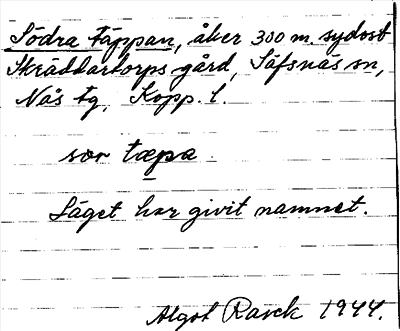 Södra täppan, åker 300 m. sydost
Skräddartorps gård, Säfsnäs sn,
Nås tg, Kopp. l.
sør tæpa.
Läget har givit namnet.
Algot Rasck 1944.